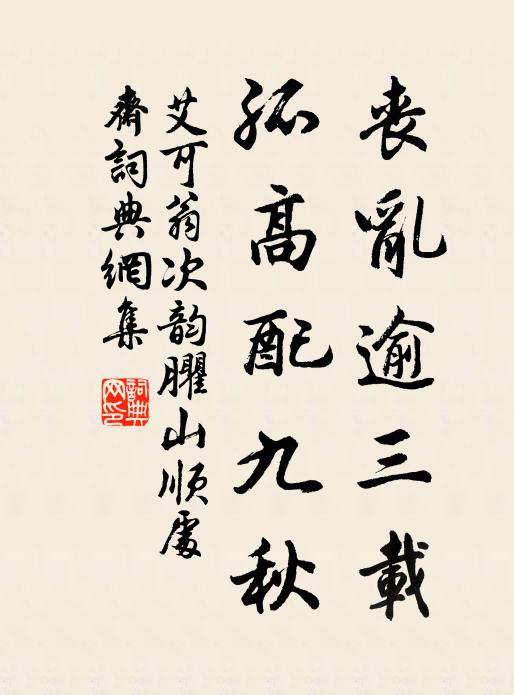 喪亂逾三載
孤高配九秋
艾可翁次韵臞山順處
齋詞典網集
詞典網印